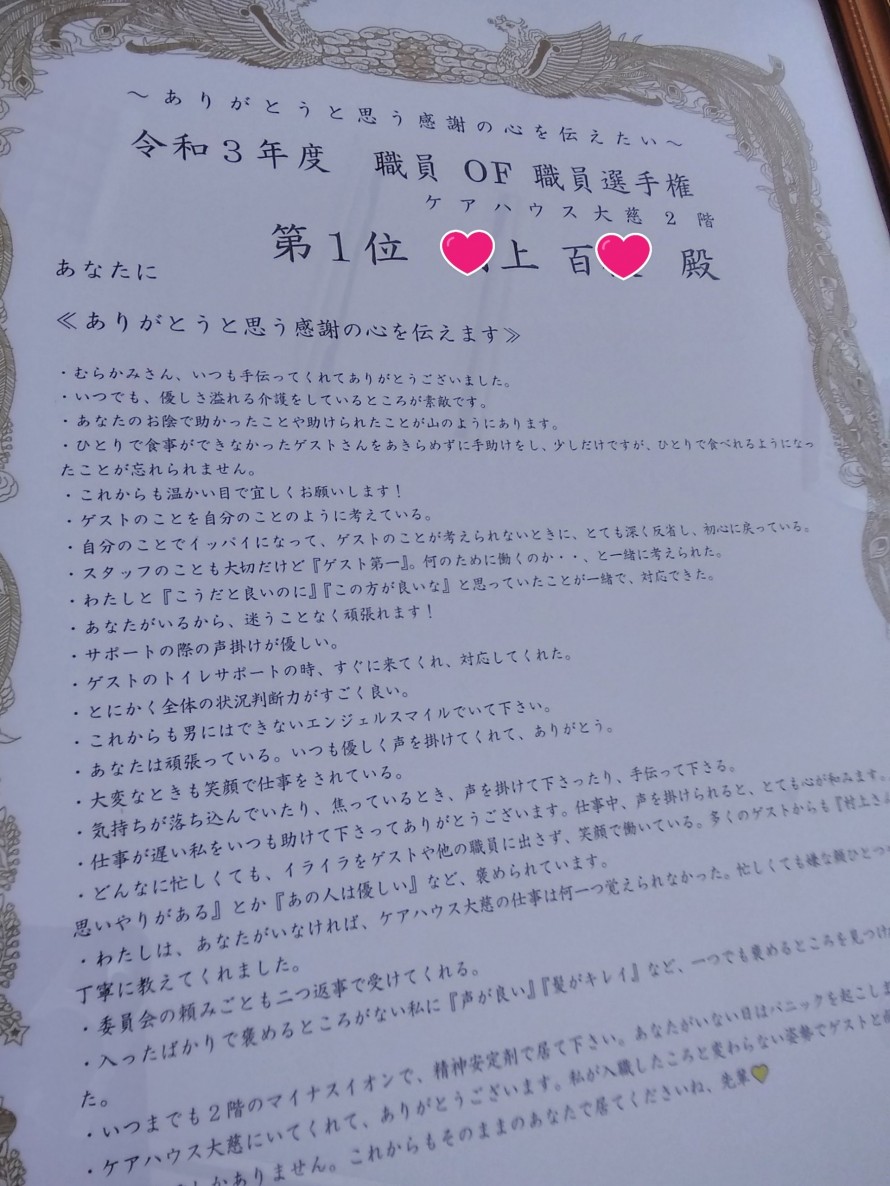 ～ありがとうと思う感謝の心を伝えたい～
令和３年度　職員 OF 職員選手権
ケアハウス大慈２階
第１位　上 百　殿
あなたに
≪ありがとうと思う感謝の心を伝えます≫
・むらかみさん、いつも手伝ってくれてありがとうございました。
・いつでも、優しさ溢れる介護をしているところが素敵です。
・あなたのお陰で助かったことや助けられたことが山のようにあります。
・ひとりで食事ができなかったゲストさんをあきらめずに手助けをし、少しだけですが、ひとりで食べれるようになっ
たことが忘れられません。
・これからも温かい目で宜しくお願いします！
・ゲストのことを自分のことのように考えている。
・自分のことでイッパイになって、ゲストのことが考えられないときに、とても深く反省し、初心に戻っている。
・スタッフのことも大切だけど『ゲスト第一』。何のために働くのか・・、と一緒に考えられた。
・わたしと『こうだと良いのに』『この方が良いな』と思っていたことが一緒で、対応できた。
・あなたがいるから、迷うことなく頑張れます！
・サポートの際の声掛けが優しい。
・ゲストのトイレサポートの時、すぐに来てくれ、対応してくれた。
・とにかく全体の状況判断力がすごく良い。
・これからも男にはできないエンジェルスマイルでいて下さい。
・あなたは頑張っている。いつも優しく声を掛けてくれて、ありがとう。
・大変なときも笑顔で仕事をされている。
・気持ちが落ち込んでいたり、焦っているとき、声を掛けて下さったり、手伝って下さる。
・仕事が遅い私をいつも助けて下さってありがとうございます。仕事中、声を掛けられると、とても心が和みます。
・どんなに忙しくても、イライラをゲストや他の職員に出さず、笑顔で働いている。多くのゲストからも『村上さ
思いやりがある』とか『あの人は優しい』など、褒められています。
・わたしは、あなたがいなければ、ケアハウス大慈の仕事は何一つ覚えられなかった。忙しくても嫌な顔ひとつ
丁寧に教えてくれました。
・委員会の頼みごとも二つ返事で受けてくれる。
・入ったばかりで褒めるところがない私に『声が良い』『髪がキレイ』など、一つでも褒めるところを見つけ
た。
・いつまでも２階のマイナスイオンで、精神安定剤で居て下さい。あなたがいない日はパニックを起こしま
・ケアハウス大慈にいてくれて、ありがとうございます。私が入職したころと変わらない姿勢でゲストと
しかありません。これからもそのままのあなたで居てくださいね、先輩